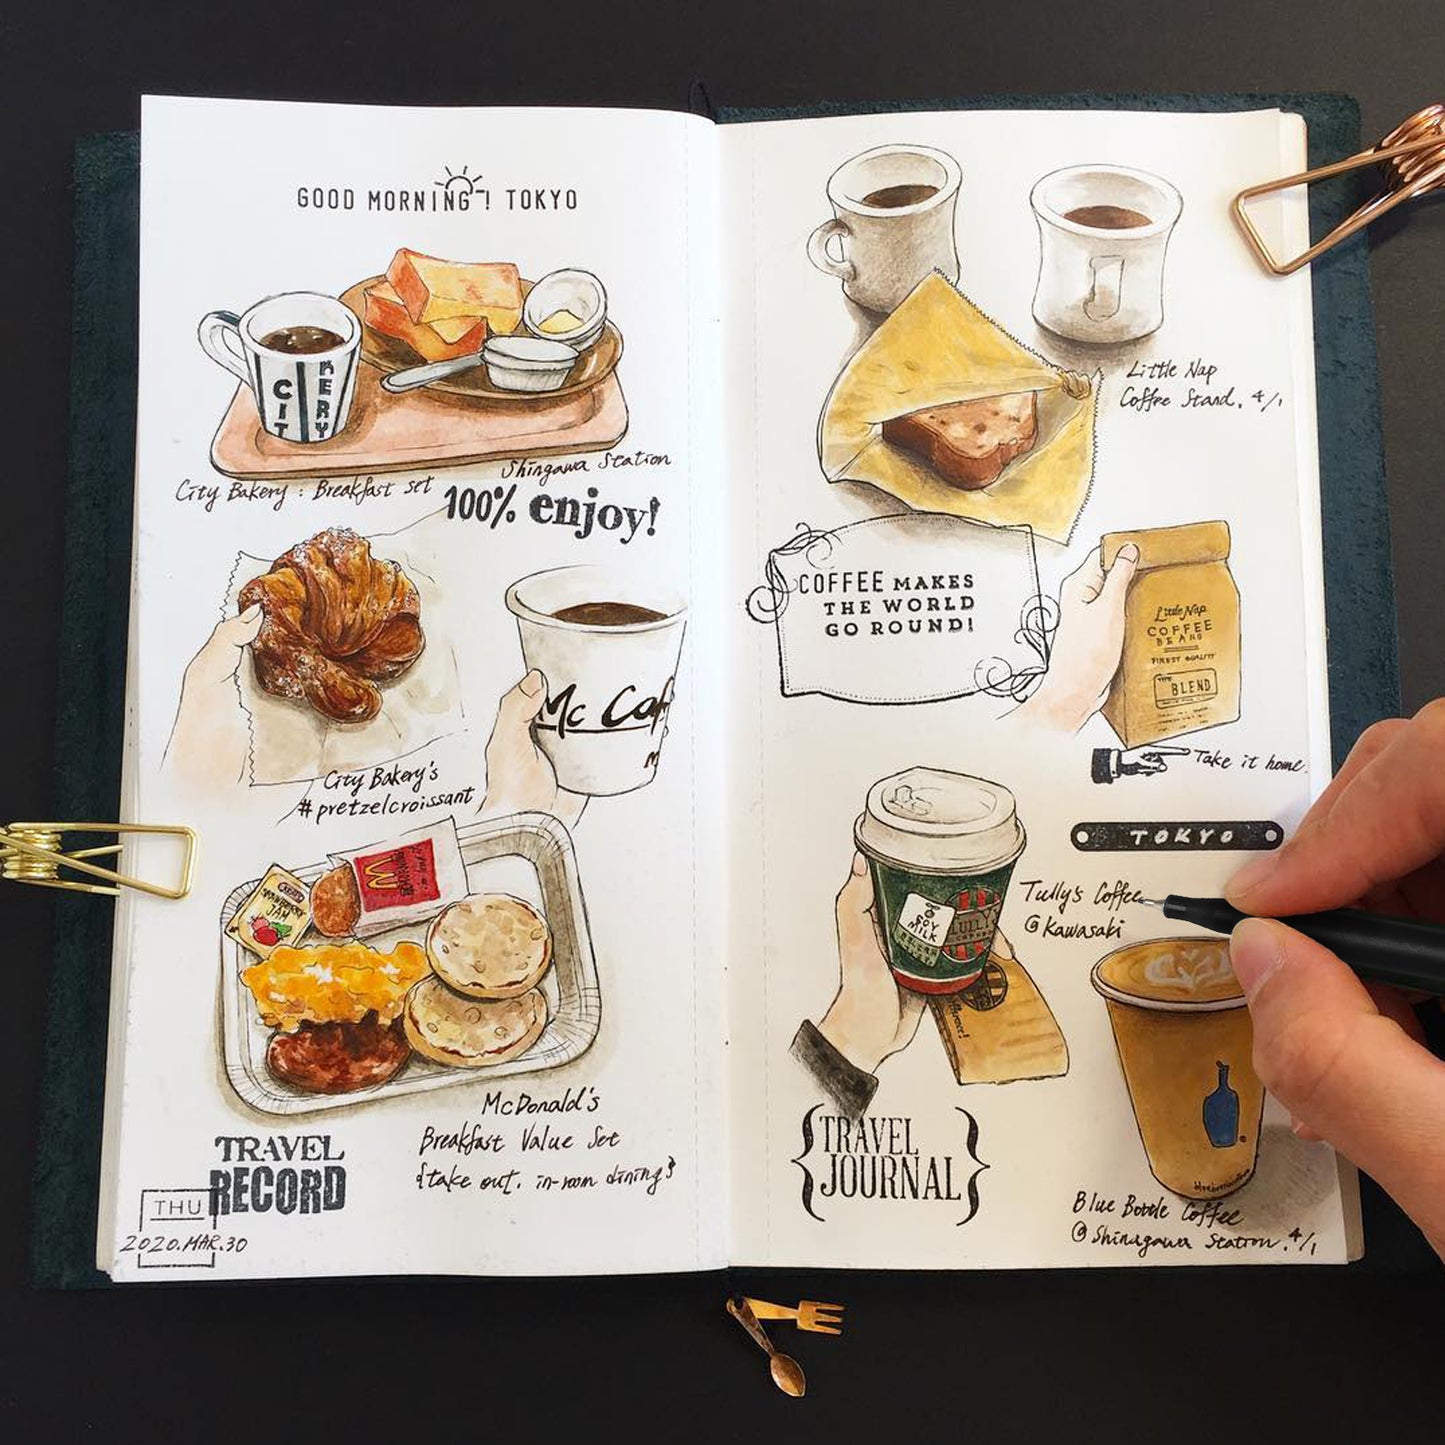 GOOD MORNING! TOKYO
CIT
KERY
Shingawa Station
City Bakery : Breakfast set
100% enjoy!
Mc Caf
M
City Bakery's
#pretzelcroissant
STRAWBERRY
JAM
McDonald's
Breakfast Value Set
{take out. in-room dining}
TRAVEL
RECORD
THU
2020.MAR.30
Little Nap
Coffee Stand. 4/1
COFFEE MAKES
THE WORLD
GO ROUND!
Little Nap
COFFEE
BEANS
FINEST QUALITY
TYPE
BLEND
Take it home.
TOKYO
Tully's Coffee
@Kawasaki
SOY
MILK
TULLY'S
COFFEE
{TRAVEL
JOURNAL}
Blue Bottle Coffee
@Shinagawa Station. 4/1